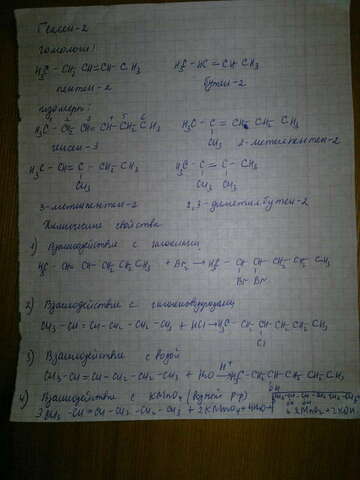 Гексен-2
гомологи:
H₃C – CH₂ CH=CH CH₂ CH₃    H₃C – HC = CH CH₃
пентен-2    бутен-2
изомеры:
H₃C – CH₂ CH= CH CH₂ CH₃    H₃C – C = CH CH₂ CH₃
CH₃
гексен-3    2-метилпентен-2
H₃C – CH= C – CH₂ CH₃    H₃C – C = C – CH₃
CH₃    CH₃ CH₃
3-метилпентен-2    2,3-диметилбутен-2
Химические свойства
1) Взаимодействие с галогенами
H₃C – CH= CH CH₂ CH₂ CH₃ + Br₂ → H₃C – CH CH CH₂ CH₂ CH₃
Br Br
2) Взаимодействие с галогеноводородами
CH₃ – CH = CH – CH₂ – CH₂ – CH₃ + HCl → H₃C – CH₂ CH CH₂ CH₂ CH₃
Cl
3) Взаимодействие с водой
CH₃ – CH = CH – CH₂ – CH₂ – CH₃ + H₂O H⁺→ H₃C – CH₂ CH CH₂ CH₂ CH₃
OH
4) Взаимодействие с KMnO₄ (водный р-р)
3CH₃ – CH = CH – CH₂ – CH₂ – CH₃ + 2KMnO₄ + 4H₂O →
+ 2MnO₂ + 2KOH